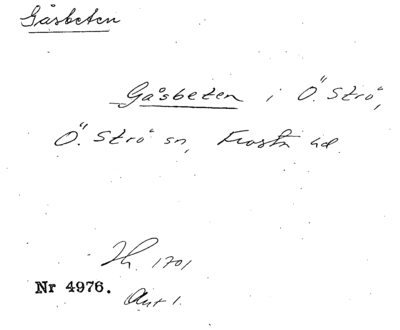 Gåsbeten
Gåsbeten i Ö. Strö,
Ö. Strö sn, Frosta hd.
Jh. 1701
Nr 4976.
Akt 1.